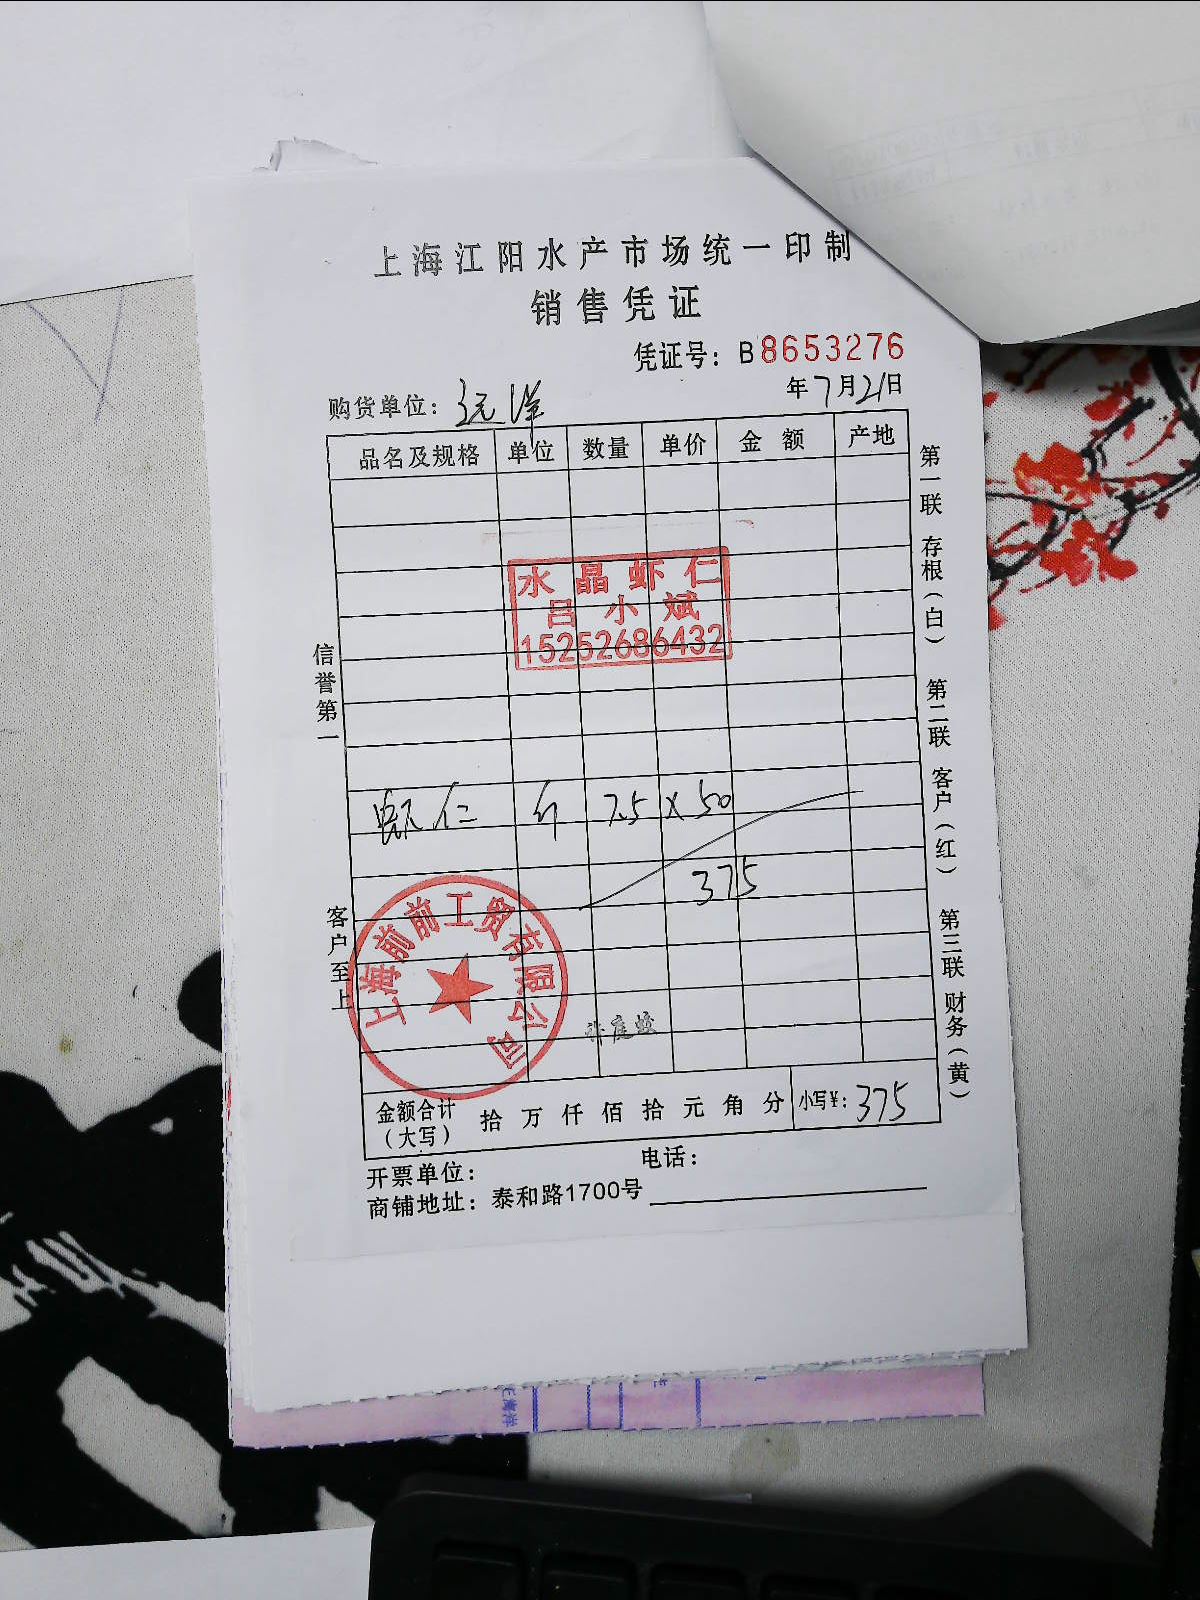 上海江阳水产市场统一印制
销售凭证
凭证号：B8653276
购货单位：远洋 年7月21日
品名及规格 单位 数量 单价 金额 产地
水晶虾仁
吕小斌
15252686432
虾仁 斤 7.5 X 50
375
上海前前工贸有限公司
许庭蛟
金额合计（大写） 拾万仟佰拾元角分 小写¥：375
开票单位： 电话：
商铺地址：泰和路1700号
信誉第一
客户至上
第一联 存根（白） 第二联 客户（红） 第三联 财务（黄）